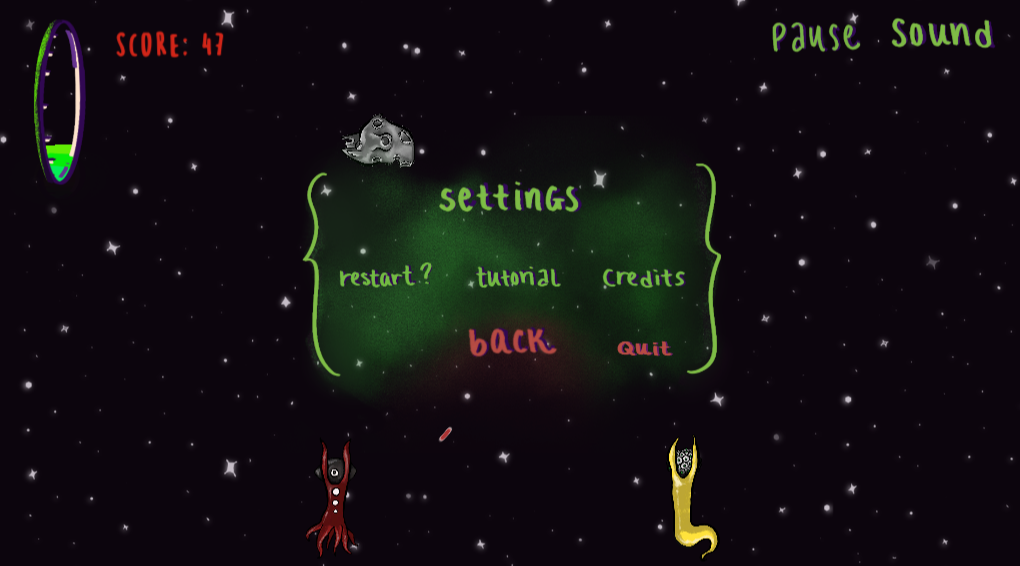 SCORE: 47
Pause Sound
settings
restart? tutorial Credits
back Quit